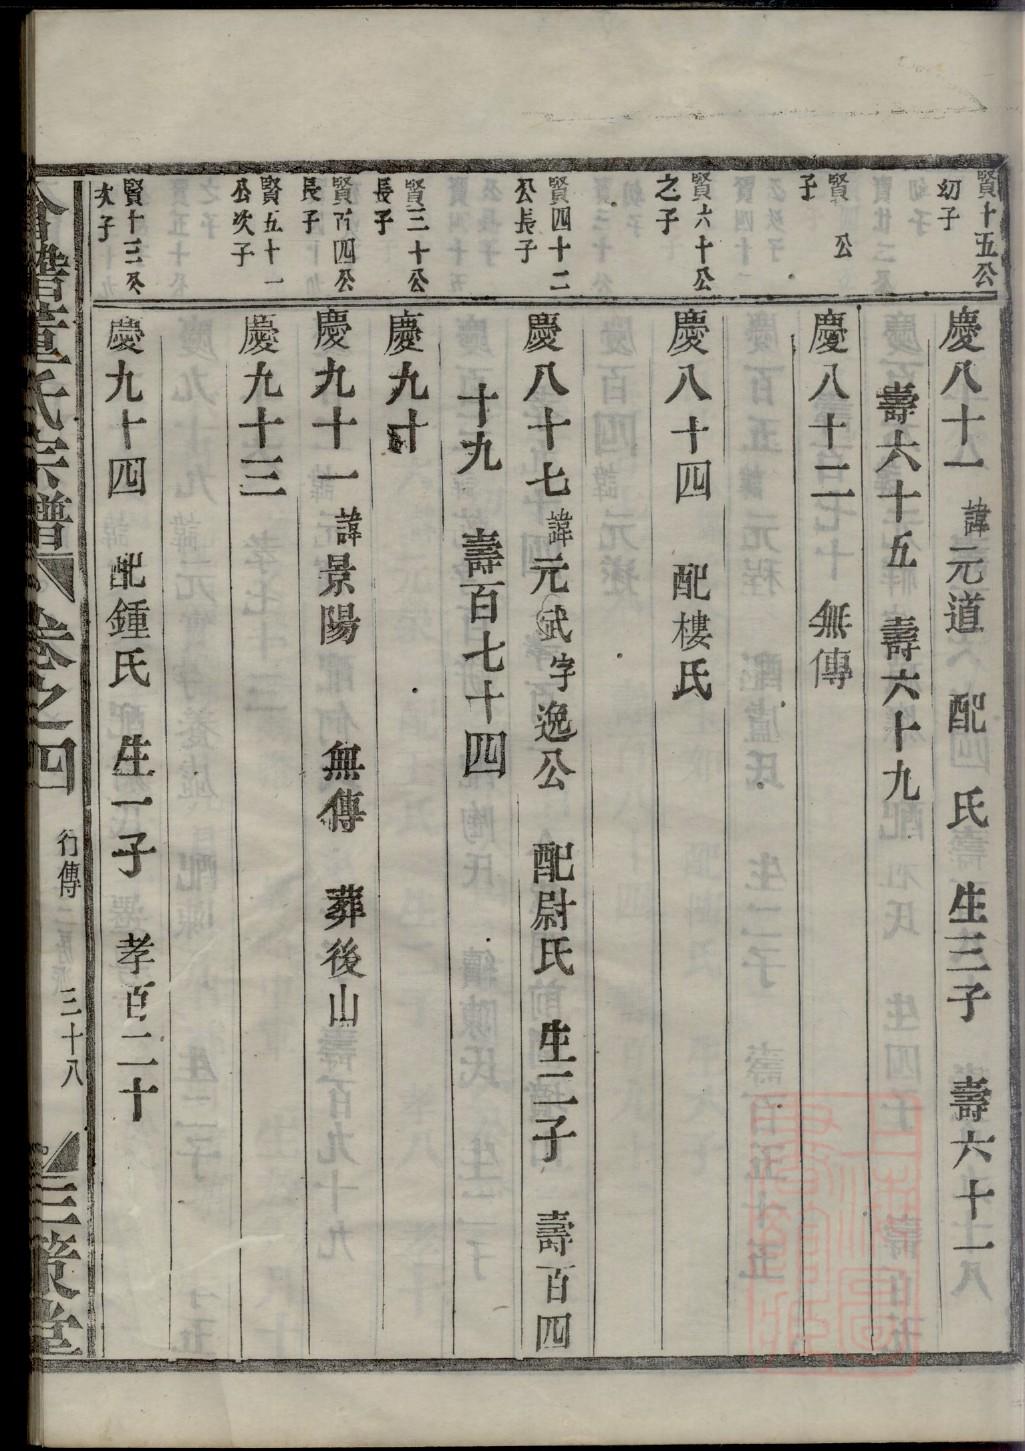 賢十五公
幼子
慶八十一 諱元道 配 氏 生三子 壽六十一
壽六十五 壽六十九
賢 公
子
慶八十二 無傳
賢六十公
之子
慶八十四 配樓氏
賢四十二
公長子
慶八十七 諱元武字逸公 配尉氏 生二子 壽百四
十九 壽百七十四
賢三十公
長子
慶九十
賢百四公
長子
慶九十一 諱景陽 無傳 葬後山
賢五十一
公次子
慶九十三
賢十三公
次子
慶九十四 配鍾氏 生一子 孝百二十
暨董氏宗譜 卷之四 行傳 三十八 三策堂